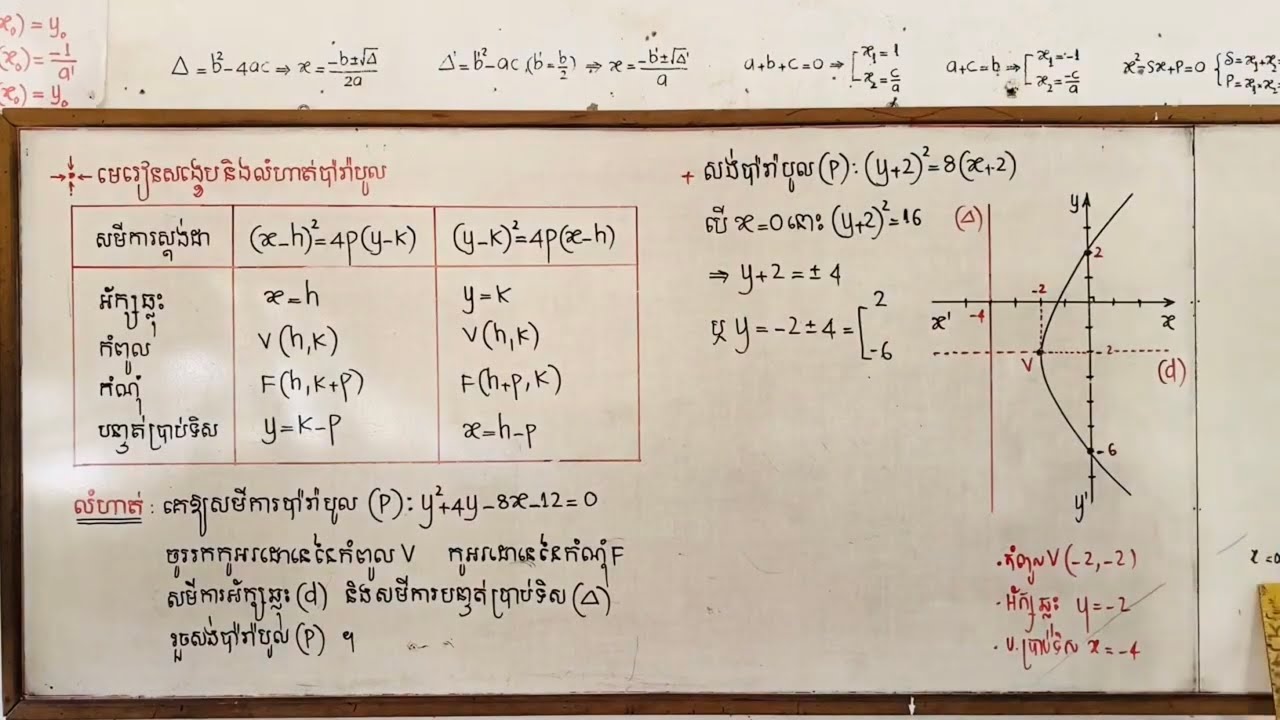 x₀) = y₀
(x₀) = -1/a'
(x₀) = y₀
Δ = b² - 4ac ⇒ x = (-b±√Δ)/2a
Δ' = b'² - ac (b' = b/2) ⇒ x = (-b'±√Δ')/a
a+b+c=0 ⇒ [x₁ = 1
x₂ = c/a
a+c=b ⇒ [x₁ = -1
x₂ = -c/a
x² - Sx + P = 0 { S = x₁+x₂
P = x₁·x₂
មេរៀនសង្ខេបនិងលំហាត់ប៉ារ៉ាបូល
សមីការស្តង់ដា (x-h)² = 4p(y-k) (y-k)² = 4p(x-h)
អ័ក្សឆ្លុះ x = h y = k
កំពូល V(h,k) V(h,k)
កំណុំ F(h,k+p) F(h+p,k)
បន្ទាត់ប្រាប់ទិស y = k-p x = h-p
លំហាត់ : គេឱ្យសមីការប៉ារ៉ាបូល (P): y²+4y-8x-12=0
ចូររកកូអរដោនេនៃកំពូល V កូអរដោនេនៃកំណុំ F
សមីការអ័ក្សឆ្លុះ (d) និងសមីការបន្ទាត់ប្រាប់ទិស (Δ)
រួចសង់ប៉ារ៉ាបូល (P) ។
+ សង់ប៉ារ៉ាបូល (P): (y+2)² = 8(x+2)
បើ x=0 នោះ (y+2)² = 16
⇒ y+2 = ± 4
ឬ y = -2 ± 4 = [2
-6
(Δ)
y
2
-2
x'
-4
x
V
-2
(d)
-6
y'
· កំពូល V(-2,-2)
· អ័ក្សឆ្លុះ y = -2
· ប.ប្រាប់ទិស x = -4
x = 0